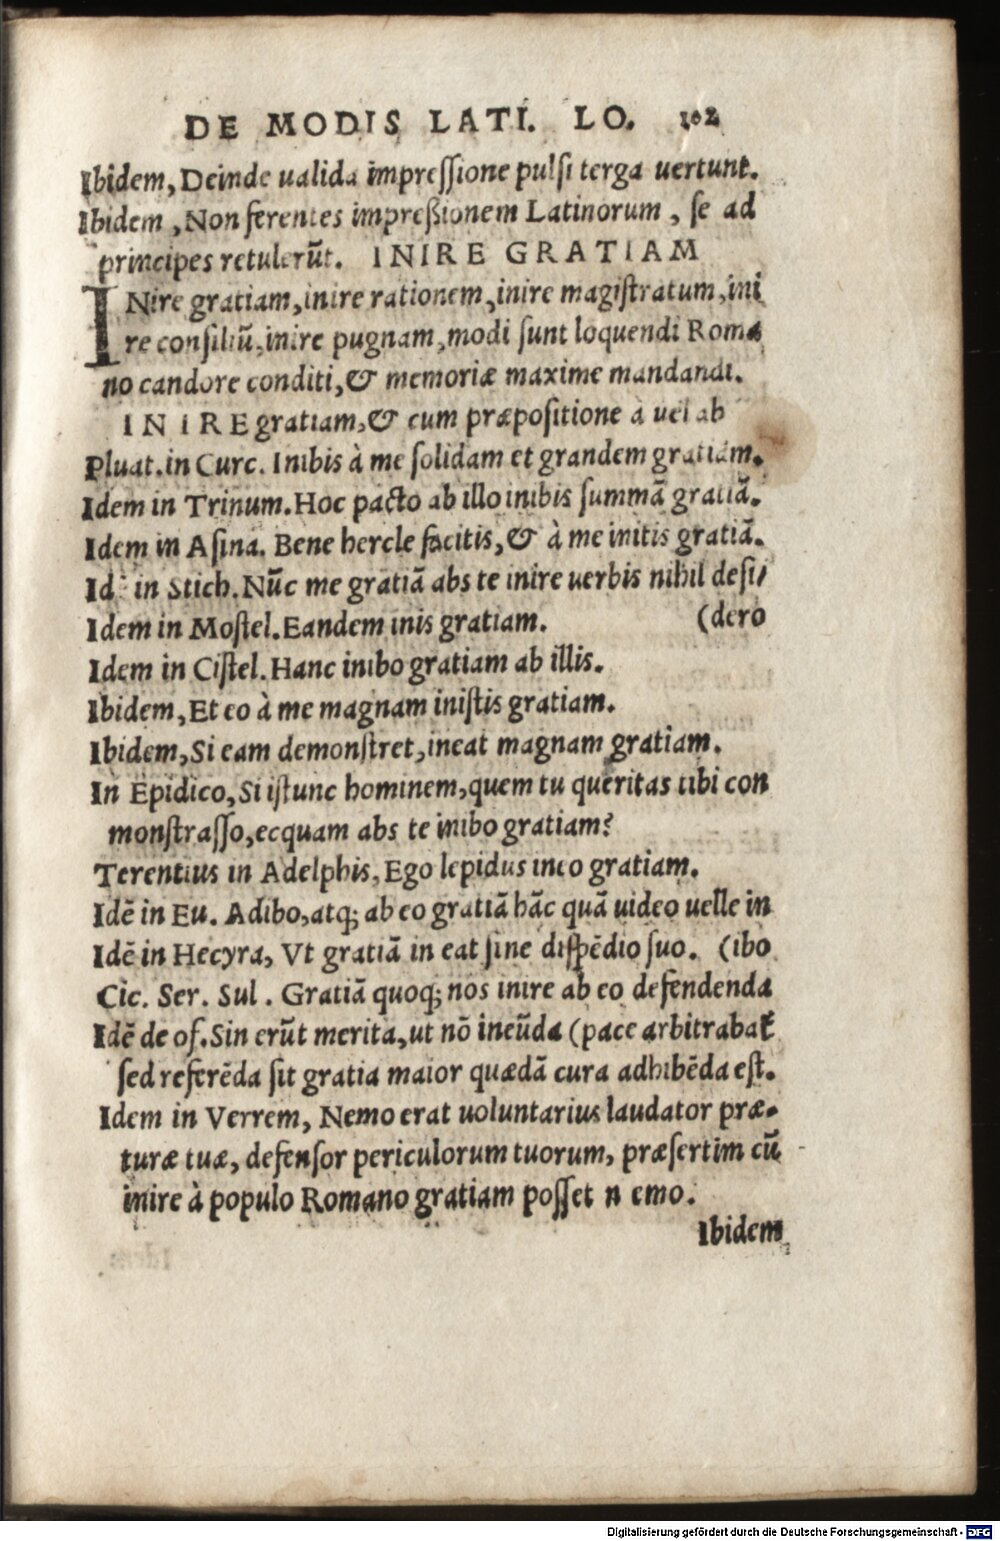 DE MODIS LATI. LO. 102
Ibidem, Deinde ualida impreſſione pulſi terga uertunt.
Ibidem, Non ferentes impreßionem Latinorum, ſe ad
principes retulerūt. INIRE GRATIAM
INire gratiam, inire rationem, inire magiſtratum, ini
re conſiliū, inire pugnam, modi ſunt loquendi Roma
no candore conditi, & memoriæ maxime mandandi.
INIRE gratiam, & cum præpoſitione à uel ab
Pluat. in Curc. Inibis à me ſolidam et grandem gratiam.
Idem in Trinum. Hoc pacto ab illo inibis ſummā gratiā.
Idem in Aſina. Bene hercle facitis, & à me initis gratiā.
Id in Stich. Nūc me gratiā abs te inire uerbis nihil deſi/
Idem in Moſtel. Eandem inis gratiam. (dero
Idem in Ciſtel. Hanc inibo gratiam ab illis.
Ibidem, Et eo à me magnam iniſtis gratiam.
Ibidem, Si eam demonſtret, ineat magnam gratiam.
In Epidico, Si iſtunc hominem, quem tu queritas tibi con
monſtraſſo, ecquam abs te inibo gratiam?
Terentius in Adelphis, Ego lepidus ineo gratiam.
Idē in Eu. Adibo, atq; ab eo gratiā hāc quā uideo uelle in
Idē in Hecyra, Vt gratiā in eat ſine diſpēdio ſuo. (ibo
Cic. Ser. Sul. Gratiā quoq; nos inire ab eo defendenda
Idē de of. Sin erūt merita, ut nō ineūda (pace arbitrabar
ſed referēda ſit gratia maior quædā cura adhibēda eſt.
Idem in Verrem, Nemo erat uoluntarius laudator præ-
turæ tuæ, defenſor periculorum tuorum, præſertim cū
inire à populo Romano gratiam poſſet n emo.
Ibidem
Digitalisierung gefördert durch die Deutsche Forschungsgemeinschaft - DFG